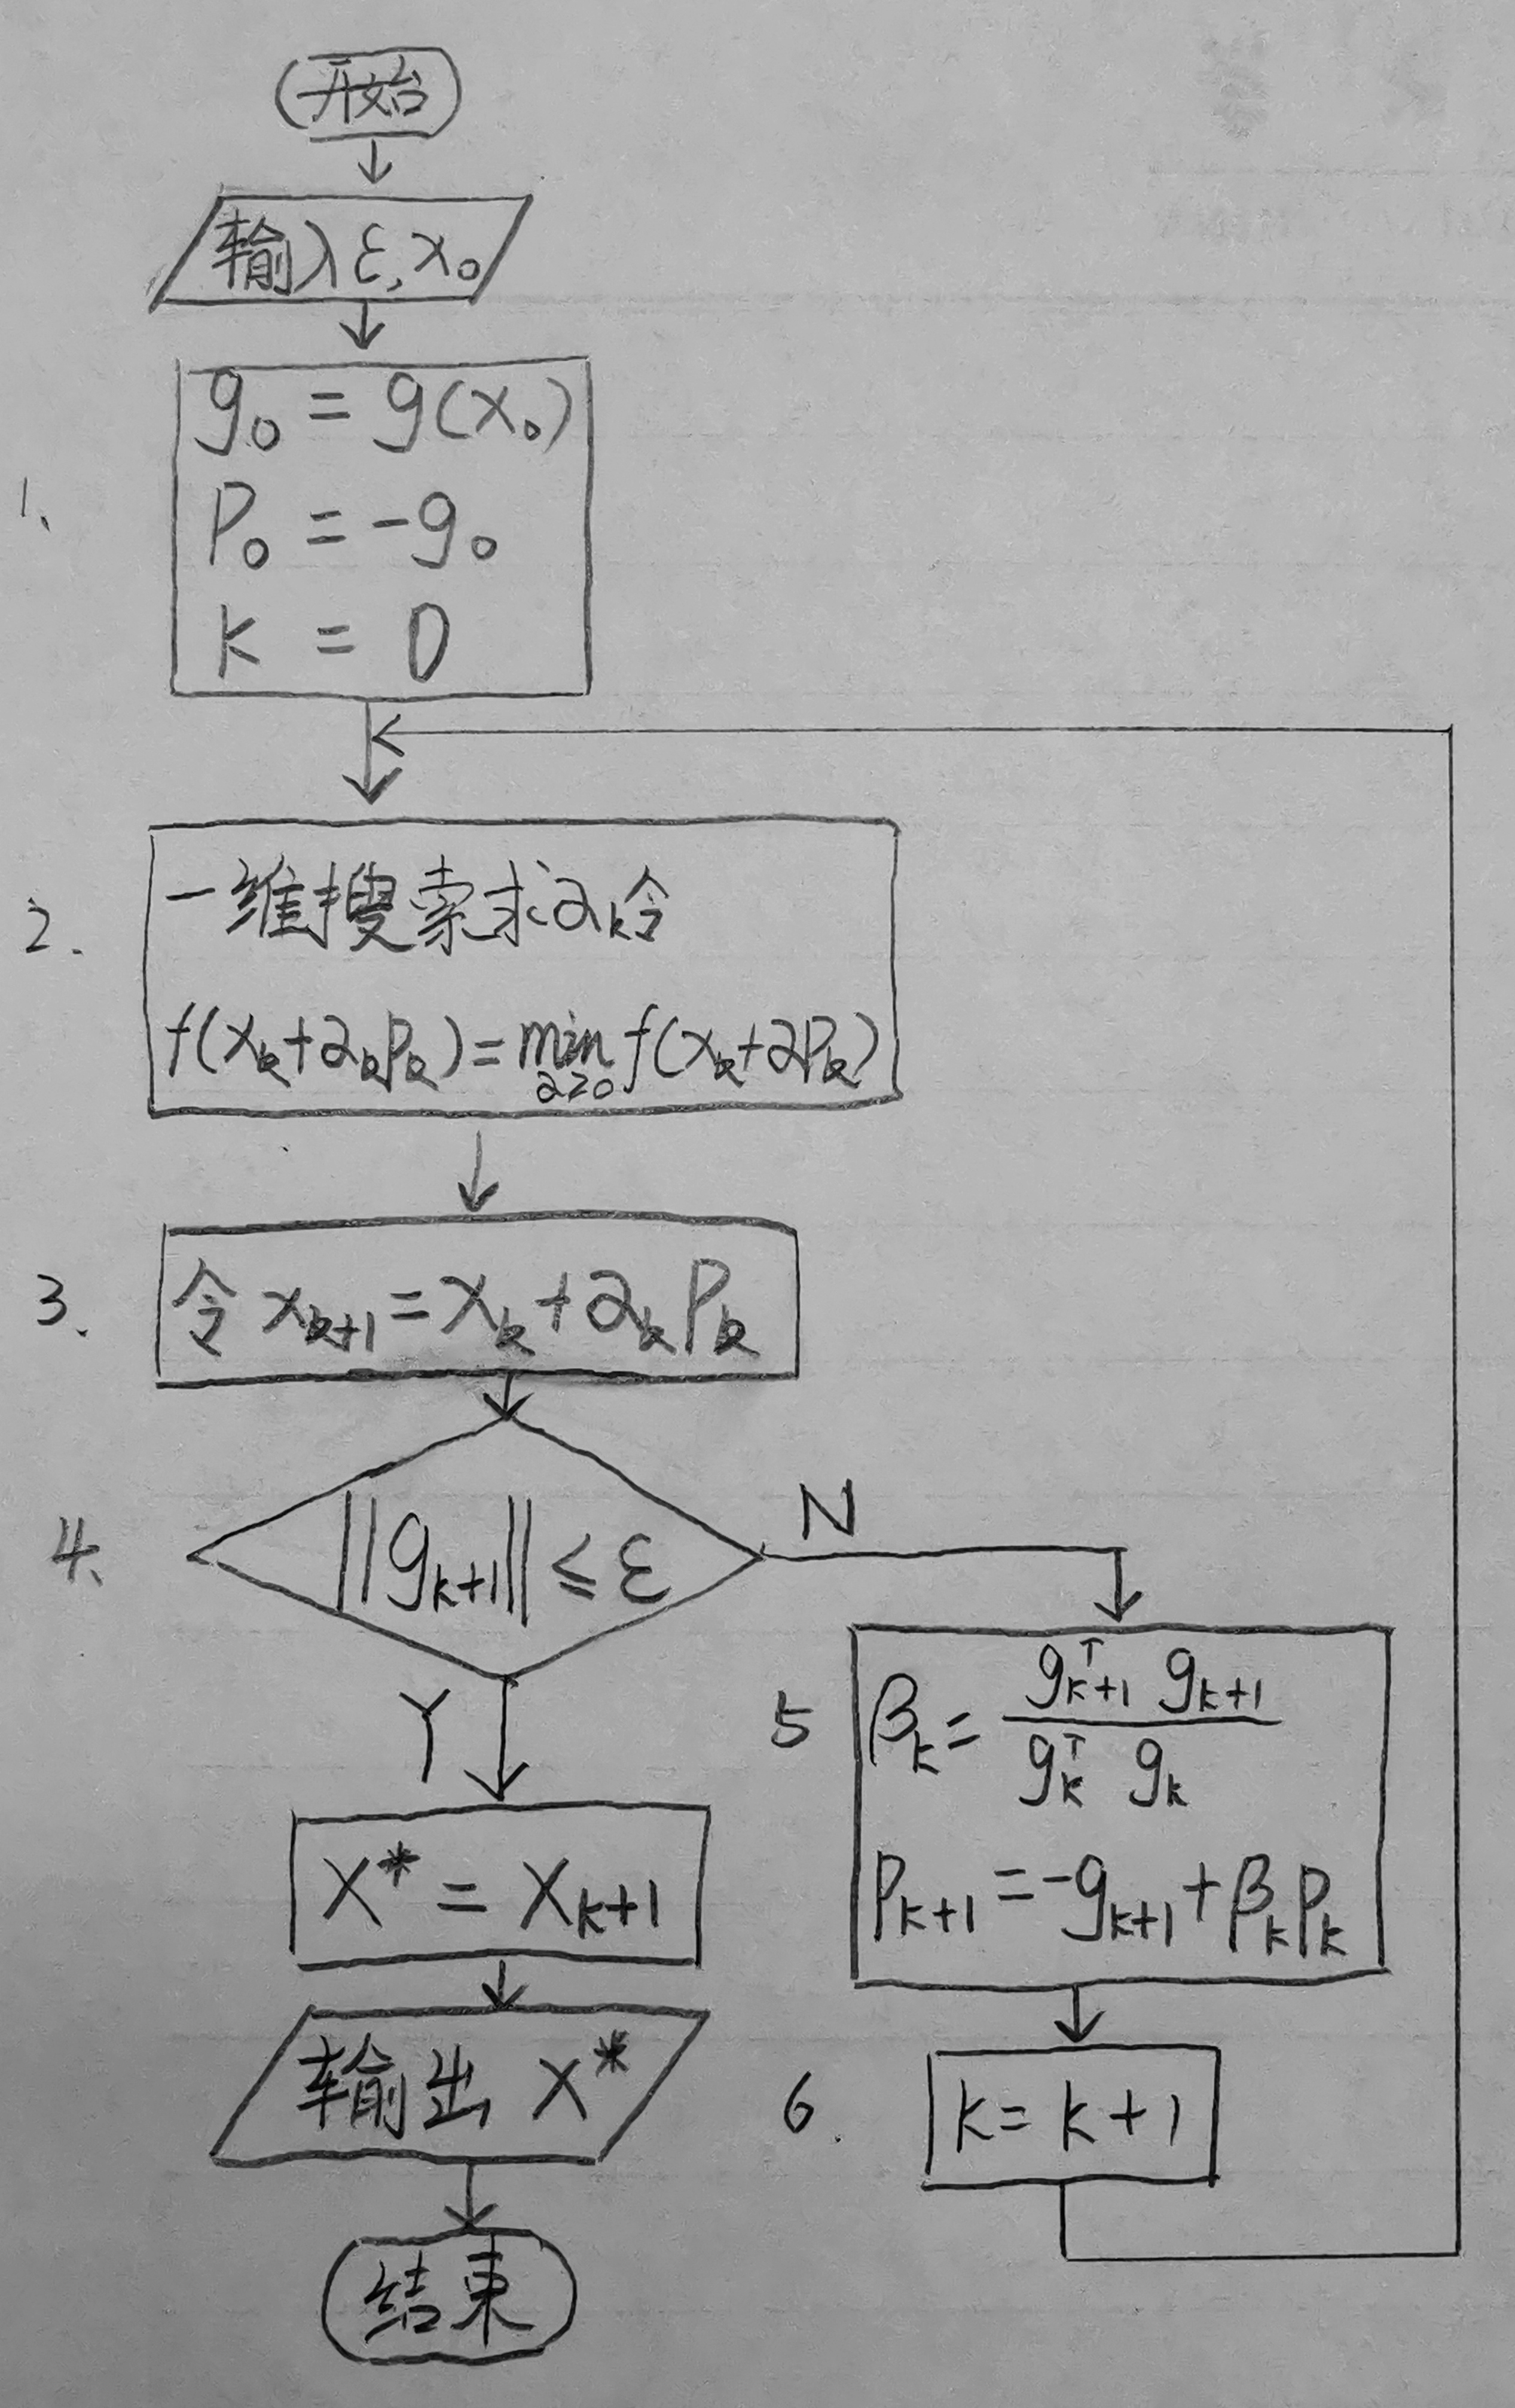 开始
输入 ε, x₀
1、
g₀ = g(x₀)
P₀ = -g₀
k = 0
2.
一维搜索求 α_k 令
f(x_k+α_k p_k) = min_{α≥0} f(x_k+α p_k)
3.
令 x_{k+1} = x_k + α_k P_k
4、
||g_{k+1}|| ≤ ε
N
Y
5
β_k = \frac{g_{k+1}^T g_{k+1}}{g_k^T g_k}
p_{k+1} = -g_{k+1} + β_k p_k
x* = x_{k+1}
输出 x*
6.
k = k + 1
结束